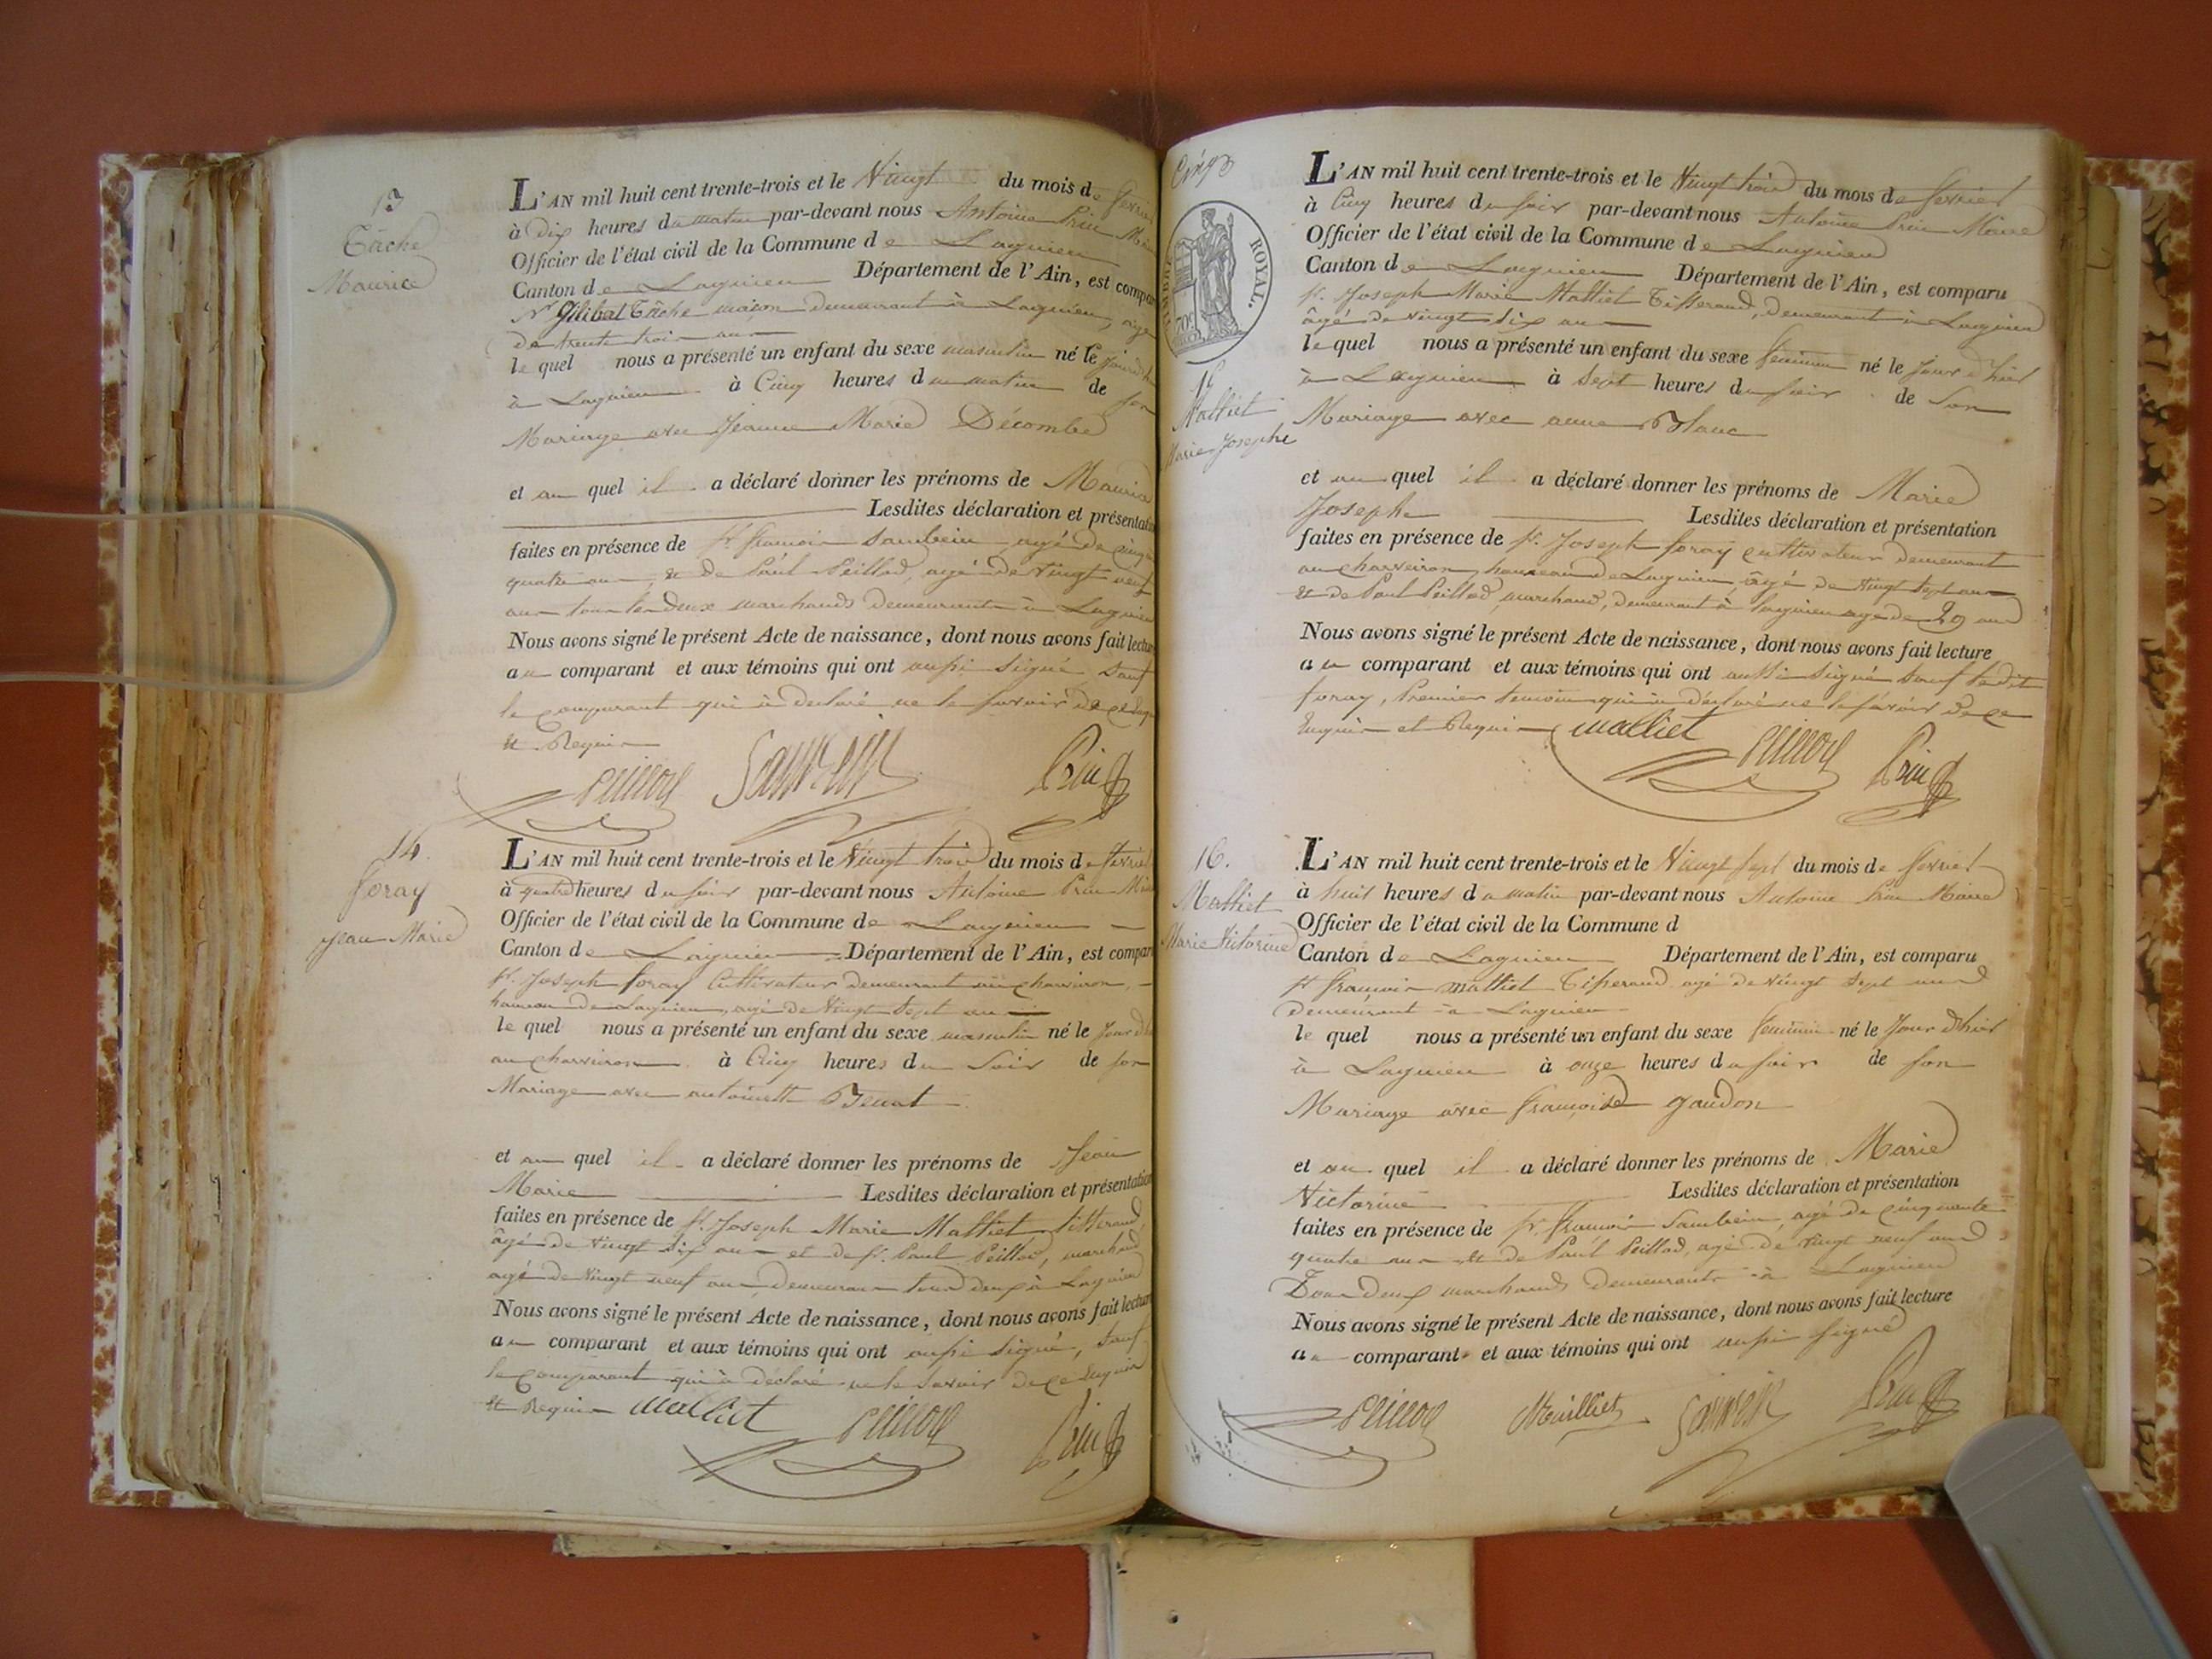 13
Tâche
Maurice
L'AN mil huit cent trente-trois et le Vingt du mois de fevrier
à Dix heures du matin par-devant nous Antoine Prin
Officier de l'état civil de la Commune de Lagnieu
Canton de Lagnieu Département de l'Ain, est compar
Sr Gilibat Tâche maçon demeurant à Lagnieu, agé
de trente trois ans
le quel nous a présenté un enfant du sexe masculin né le
à Lagnieu à Cinq heures du matin de son
Mariage avec Jeanne Marie Décombe
et au quel il a déclaré donner les prénoms de Maurice
Lesdites déclaration et présentation
faites en présence de Sr. françois Sambein agé de cinq
quatre ans, et de Paul Peillod, agé de vingt neuf
ans tous les deux marchands demeurants à Lagnieu
Nous avons signé le présent Acte de naissance, dont nous avons fait lecture
au comparant et aux témoins qui ont aussi signé, sauf
le comparant qui à declaré ne le savoir de ce
et Requis
peillod Prin
14.
foray
Jean Marie
L'AN mil huit cent trente-trois et le Vingt trois du mois de fevrier
à quatre heures du soir par-devant nous Antoine Prin
Officier de l'état civil de la Commune de Lagnieu
Canton de Lagnieu Département de l'Ain, est compar
Sr. Joseph foray Cultivateur demeurant au charveiron,
hameau de Lagnieu, agé de Vingt Sept ans
le quel nous a présenté un enfant du sexe masculin né le Jour
au charveiron à Cinq heures du Soir de son
Mariage avec antoinette
et au quel il a déclaré donner les prénoms de Jean
Marie Lesdites déclaration et présentation
faites en présence de Sr. Joseph Marie Malliet, tisserand,
âgé de Vingt six ans et de Sr. Paul Peillod, marchand
agé de Vingt neuf ans, demeurant tous deux à Lagnieu
Nous avons signé le présent Acte de naissance, dont nous avons fait lecture
au comparant et aux témoins qui ont aussi signé, sauf
le comparant qui à déclaré ne le Savoir de ce Enquis
et Requis malliet
peillod Prin
Cinq
TIMBRE ROYAL.
70c
15
Malliet
Marie Josephe
L'AN mil huit cent trente-trois et le Vingt trois du mois de fevrier
à Cinq heures du soir par-devant nous Antoine Prin Maire
Officier de l'état civil de la Commune de Lagnieu
Canton de Lagnieu Département de l'Ain, est comparu
Sr. Joseph Marie Malliet Tisserand, demeurant à Lagnieu
âgé de vingt six ans
le quel nous a présenté un enfant du sexe feminin né le jour d'hier
à Lagnieu à Sept heures du soir de Son
Mariage avec anne Blanc
et au quel il a déclaré donner les prénoms de Marie
Josephe Lesdites déclaration et présentation
faites en présence de Sr. Joseph foray cultivateur demeurant
au charveiron, hameau de Lagnieu, âgé de vingt sept ans
et de Paul Peillod, marchand, demeurant à Lagnieu agé de 29 ans
Nous avons signé le présent Acte de naissance, dont nous avons fait lecture
au comparant et aux témoins qui ont aussi signé sauf ledit
foray, Premier temoin qui à déclaré ne le savoir de ce
Enquis et Requis malliet
peillod Prin
16.
Malliet
Marie Victorine
L'AN mil huit cent trente-trois et le Vingt sept du mois de fevrier
à huit heures du matin par-devant nous Antoine Prin Maire
Officier de l'état civil de la Commune d
Canton de Lagnieu Département de l'Ain, est comparu
Sr françois malliet Tisserand agé de vingt sept ans
demeurant à Lagnieu
le quel nous a présenté un enfant du sexe feminin né le Jour d'hier
à Lagnieu à onze heures du soir de son
Mariage avec françoise gaudon
et au quel il a déclaré donner les prénoms de Marie
Victorine Lesdites déclaration et présentation
faites en présence de Sr. françois Sambein, agé de cinquante
quatre ans et de Paul Peillod, agé de vingt neuf ans
Tous deux marchands demeurants à Lagnieu
Nous avons signé le présent Acte de naissance, dont nous avons fait lecture
au comparant et aux témoins qui ont aussi signé
peillod Mailliet Prin